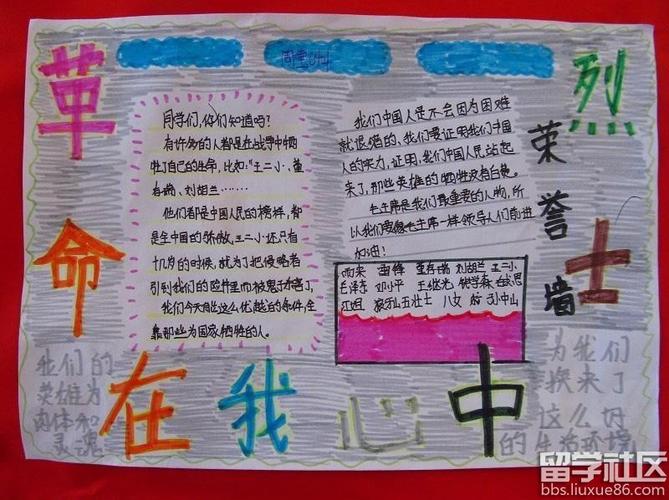 革命烈士
荣誉墙
在我心中
同学们,你们知道吗?
有许多的人都是在战争中牺
牲了自己的生命,比如:"王二小、董
存瑞、刘胡兰……
他们都是中国人民的榜样,都
是全中国的骄傲,王二小还只有
十几岁的时候,就为了把侵略者
引到我们的
我们今天有这么优越的条件,全
靠那些为国家牺牲的人。
我们中国人是不会因为困难
就退缩的、我们要证明我们中国
人的实力,证明,我们中国人民站起
来了,那些英雄的牺牲没有白费。
毛主席是我们最重要的人物,所
以我们要像毛主席一样领导人们向前进
加油!
雨来 雷锋 董存瑞 刘胡兰 王二小
毛泽东 邓小平 王继光 钱学森
江姐 狼牙山五壮士 八女 孙中山
我们的
英雄为
肉体和
灵魂
为我们
换来了
这么好
的生活环境
留学社区
bbs.liuxue86.com